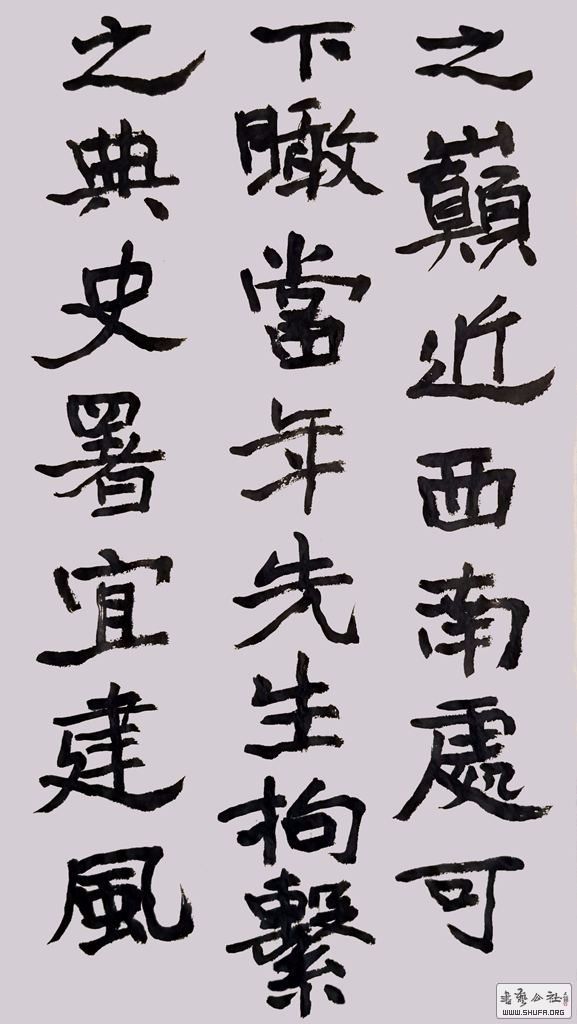 之巔近西南處可
下瞰當年先生拘繫
之典史署宜建風
書藝公社
WWW.SHUFA.ORG